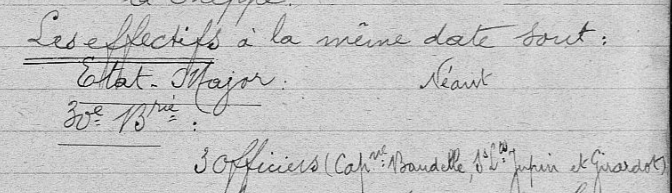 Les effectifs à la même date sont :
Etat-Major. Néant
30e Brie :
3 Officiers (Capne Baudelle, Ss Lts Jupin et Girardot)